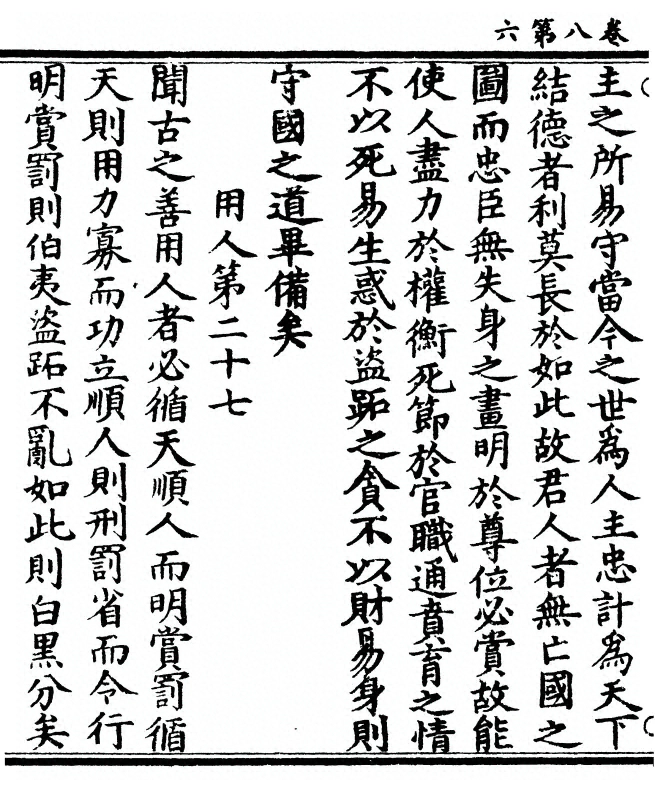 卷八第六
主之所易守當今之世爲人主忠計爲天下
結德者利莫長於如此故君人者無亡國之
圖而忠臣無失身之畫明於尊位必賞故能
使人盡力於權衡死節於官職通賁育之情
不以死易生惑於盜跖之貪不以財易身則
守國之道畢備矣
用人第二十七
聞古之善用人者必循天順人而明賞罰循
天則用力寡而功立順人則刑罰省而令行
明賞罰則伯夷盜跖不亂如此則白黑分矣